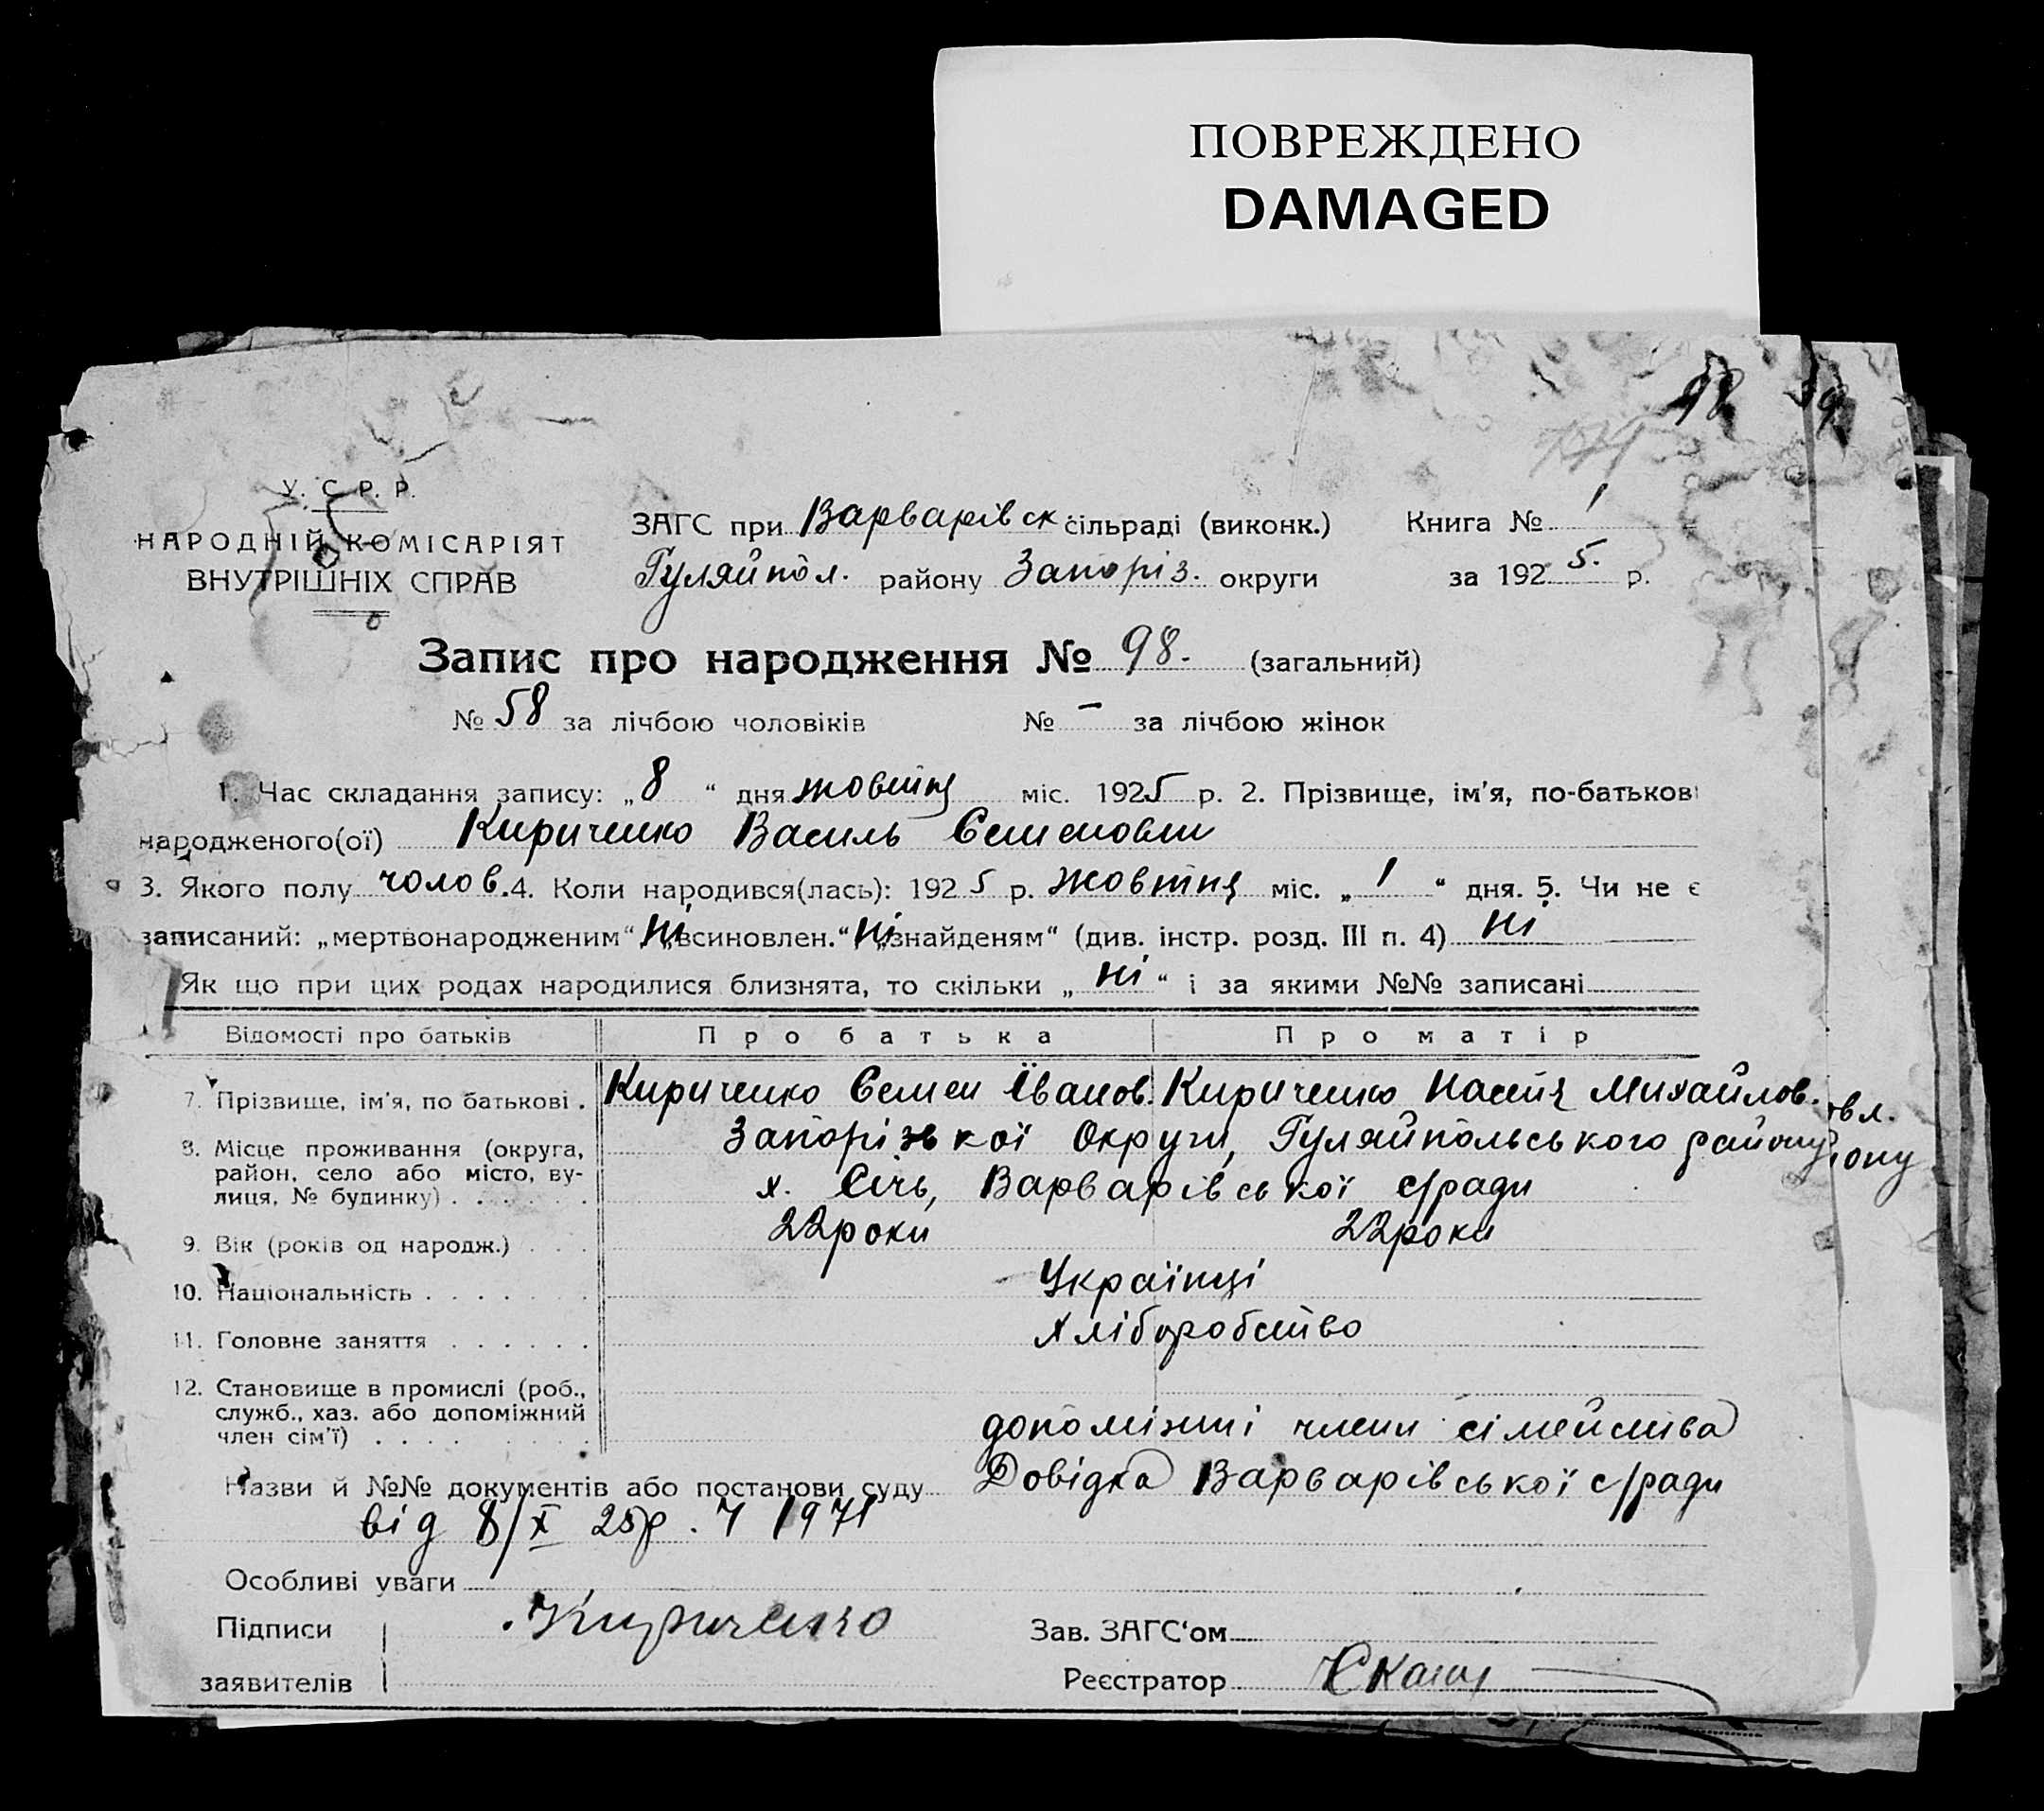 ПОВРЕЖДЕНО
DAMAGED
98
У. С. Р. Р.
НАРОДНІЙ КОМІСАРІЯТ
ВНУТРІШНІХ СПРАВ
ЗАГС при Варварівск сільраді (виконк.) Книга № 1
Гуляйпол. району Запоріз. округи за 1925. р.
Запис про народження № 98. (загальний)
№ 58 за лічбою чоловіків № – за лічбою жінок
1. Час складання запису: „8“ дня жовтня міс. 1925 р. 2. Прізвище, ім'я, по-батькові
народженого(ої) Кириченко Василь Семенович
3. Якого полу чолов. 4. Коли народився(лась): 1925 р. жовтня міс. „1“ дня. 5. Чи не є
записаний: „мертвонародженим“ ні „всиновлен.“ ні „знайденям“ (див. інстр. розд. III п. 4) ні
Як що при цих родах народилися близнята, то скільки „ні“ і за якими №№ записані
Відомості про батьків Про батька Про матір
7. Прізвище, ім'я, по батькові . Кириченко Семен Іванов. Кириченко Настя Михайлов. овл.
8. Місце проживання (округа, Запорізької Округи, Гуляйпольського району ону
район, село або місто, ву-
лиця, № будинку) . . . . . . х. Січь, Варварівської с/ради
9. Вік (років од народж.) . . . 22 роки 22 роки
10. Національність . . . . . . . Українці
11. Головне заняття . . . . . . Хліборобство
12. Становище в промислі (роб.,
служб., хаз. або допоміжний
член сім'ї) . . . . . . . . допоміжні члени сімейства
Назви й №№ документів або постанови суду Довідка Варварівської с/ради
від 8/X 25р. Ч 1971
Особливі уваги
Підписи Кириченко Зав. ЗАГС‘ом
заявителів Реєстратор